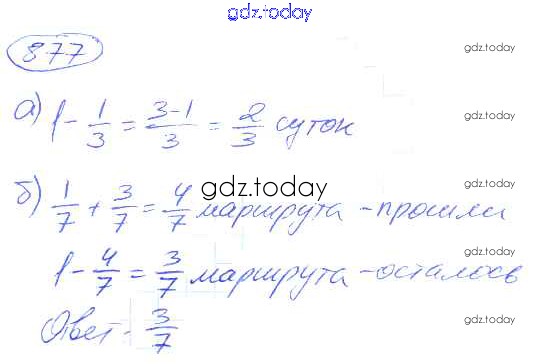 gdz.today
877
gdz.today
а) 1 - 1/3 = (3-1)/3 = 2/3 суток
gdz.today
б) 1/7 + 3/7 = 4/7 маршрута - прошли
gdz.today
gdz.today
1 - 4/7 = 3/7 маршрута - осталось
gdz.today
Ответ - 3/7
gdz.today